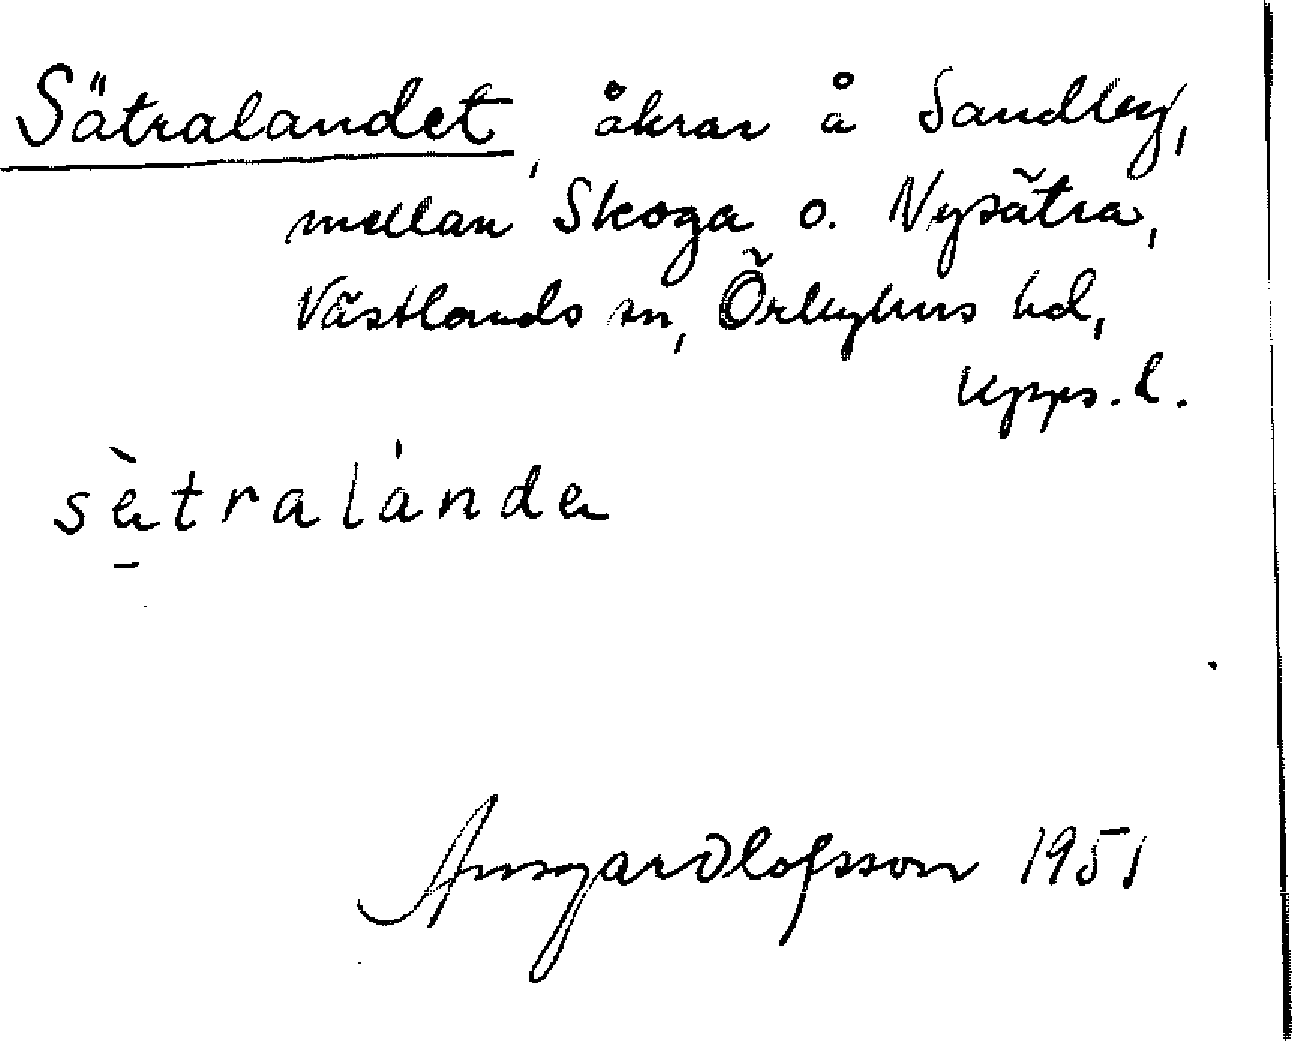 Sätralandet, åkrar å Sandby,
mellan Skoga o. Nysätra,
Västlands sn, Örbyhus hd,
Upps. l.
sètralànde
Ansgar Olofsson 1951